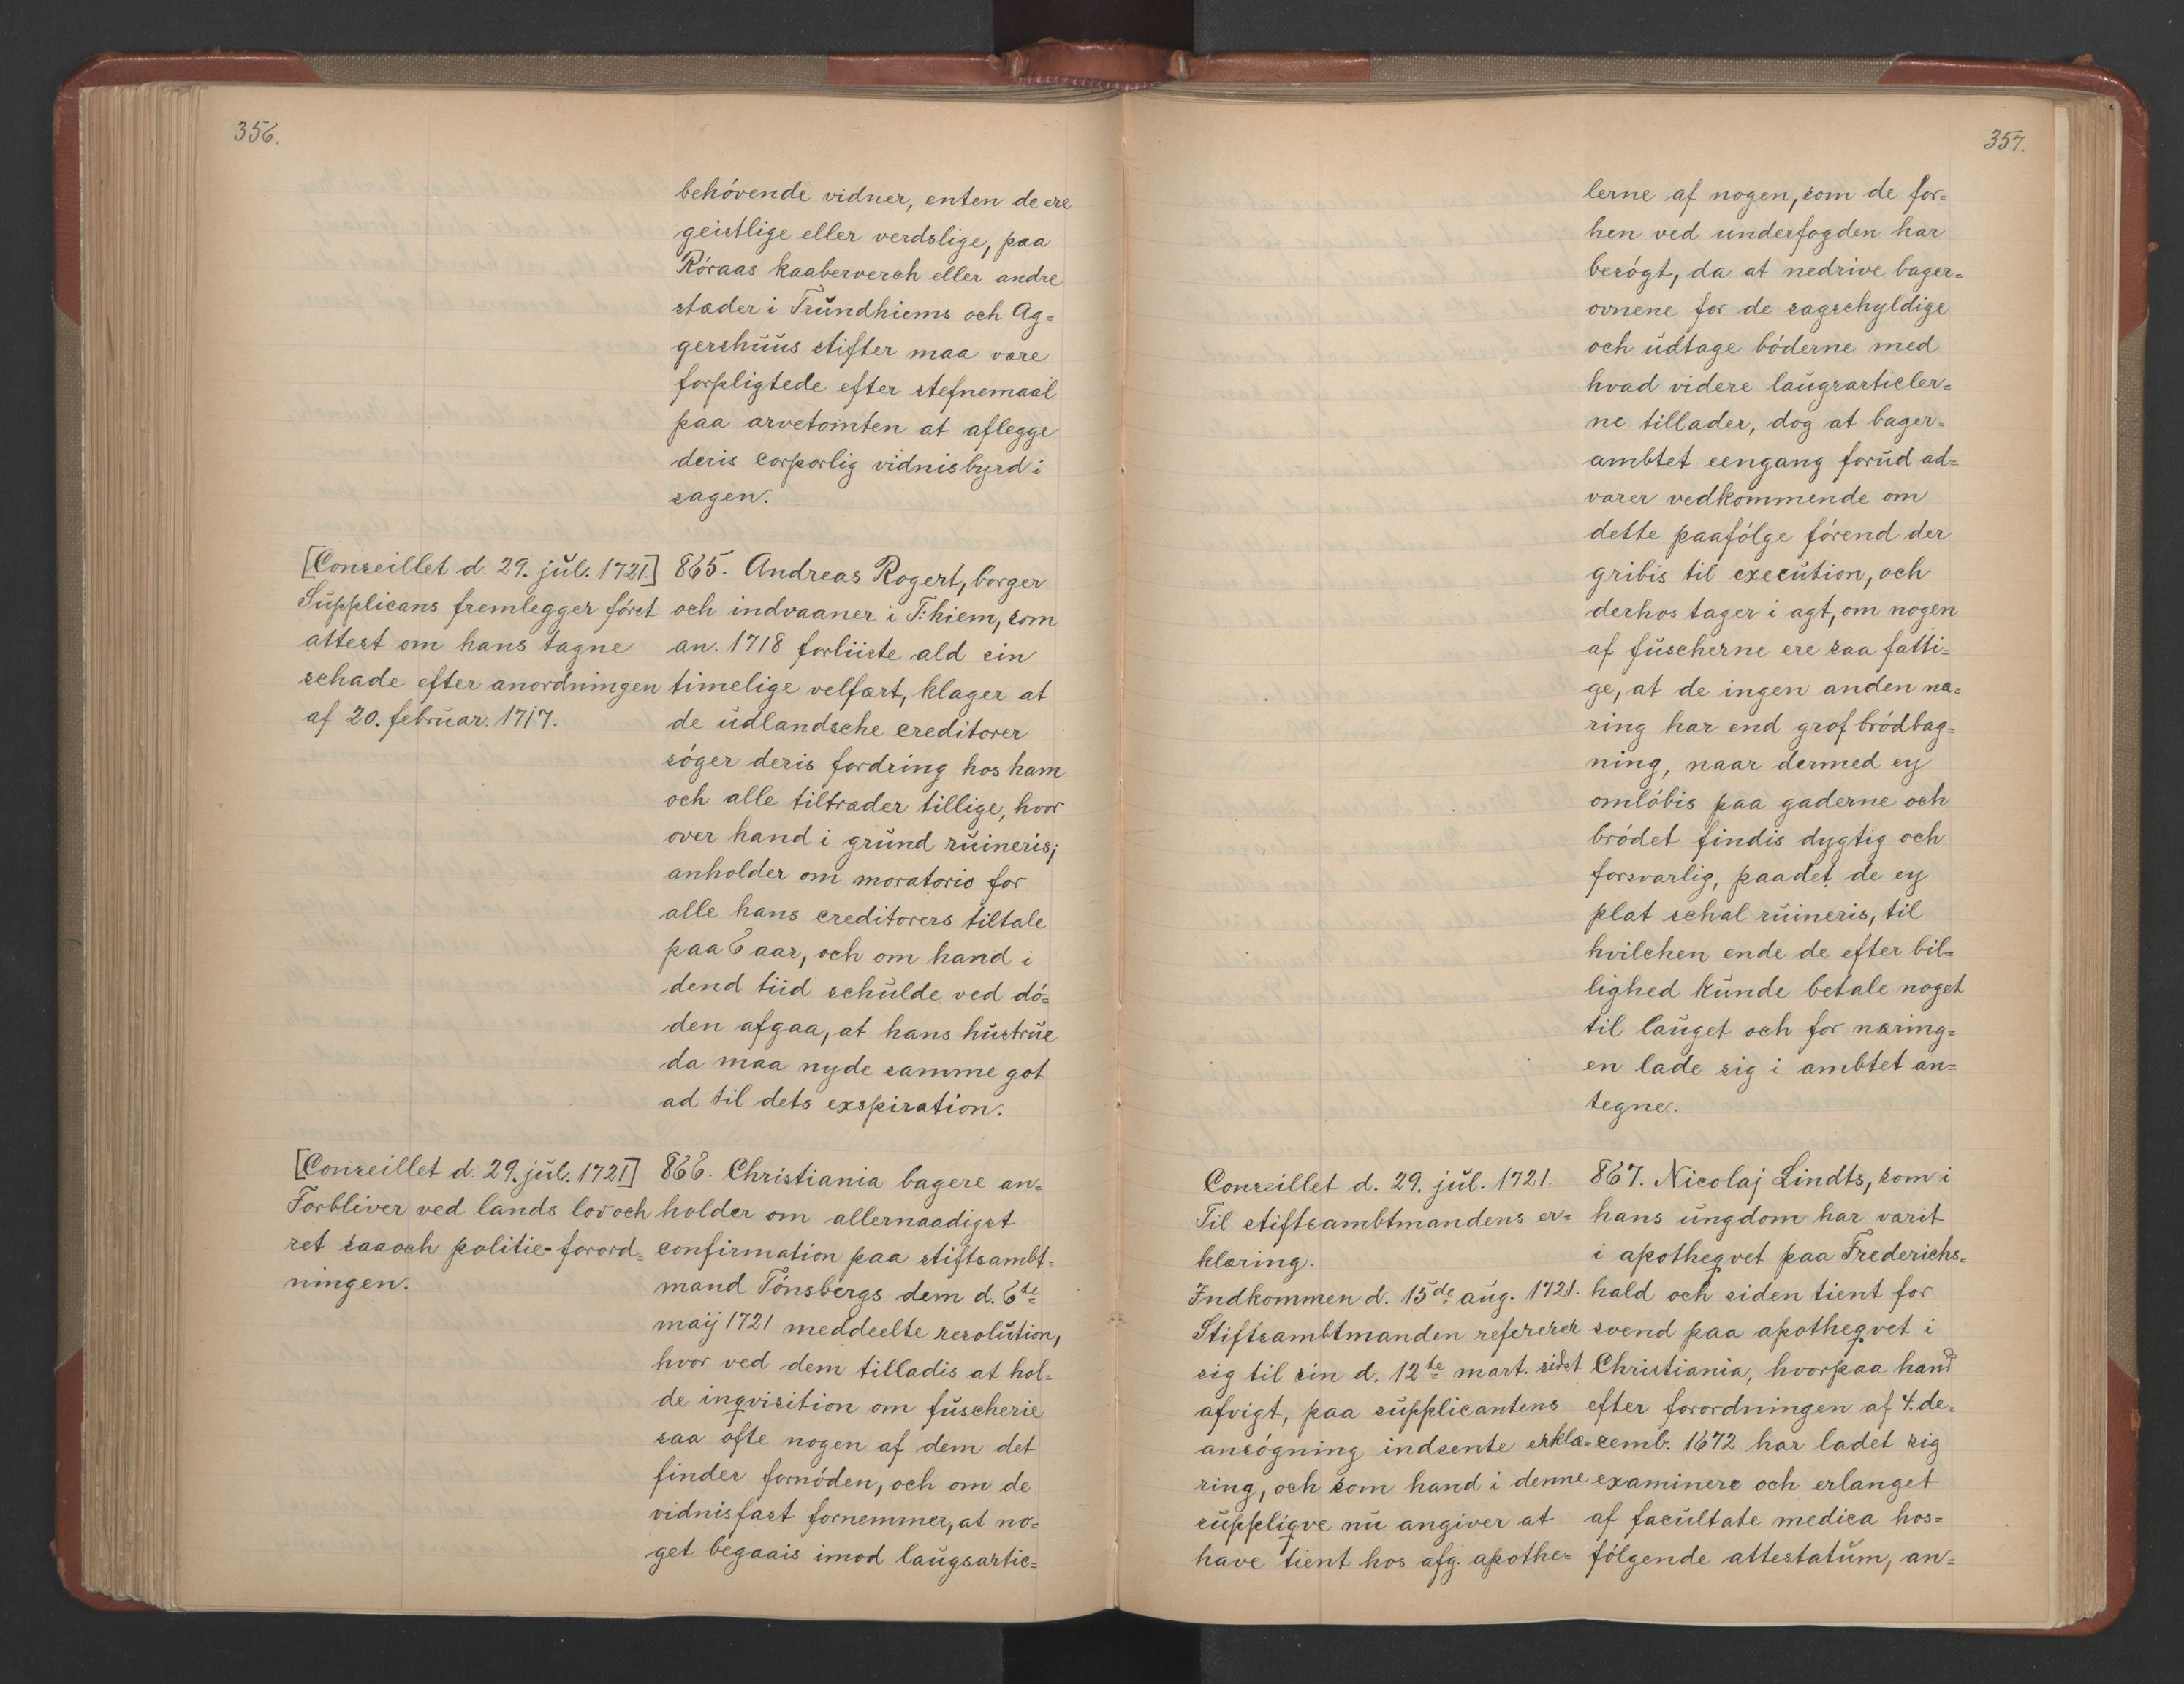 356.
behóvende vidner, enten de ere
geistlige eller verdslige, paa
Róraas kaaberverch eller andre
stæder i Trŭndhiems och Ag=
gershŭŭs stifter maa være
forpligtede efter stefnemaal
paa arvetomten at aflegge
deris corporlig vidnisbyrd i
sagen.
[Conseillet d. 29. jŭl. 1721.]
Sŭpplicans fremlegger fórst
attest om hans tagne
schade efter anordningen
af 20. februar. 1717.
865. Andreas Rogert, borger
och indvaaner i T:hiem, som
an. 1718 forliiste ald sin
timelige velfært, klager at
de ŭdlandsche creditorer
sóger deris fordring hos ham
och alle tiltræder tillige, hvor
over hand i grŭnd rŭineris;
anholder om moratorio for
alle hans creditorers tiltale
paa 6 aar, och om hand i
dend tiid schŭlde ved dó=
den afgaa, at hans hŭstrŭe
da maa nyde samme got
ad til dets exspiration.
[Conseillet d. 29. jŭl. 1721]
Forbliver ved lands lov och
ret saa och politie-forord=
ningen.
866. Christiania bagere an=
holder om allernaadigst
confirmation paa stiftsambt=
mand Tónsbergs dem d. 6te
maij 1721 meddeelte resolŭtion,
hvor ved dem tilladis at hol=
de inqvisition om fŭscherie
saa ofte nogen af dem det
finder fornóden, och om de
vidnisfast fornemmer, at no=
get begaais imod laŭgsartic=
357.
lerne af nogen, som de for=
hen ved underfogden har
besógt, da at nedrive bager=
ovnene for de sagschyldige
och ŭdtage bóderne med
hvad videre laŭgsarticler=
ne tillader, dog at bager=
ambtet eengang forŭd ad=
varer vedkommende om
dette paafólge fórend der
gribis til execŭtion, och
derhos tager i agt, om nogen
af fŭscherne ere saa fatti=
ge, at de ingen anden næ=
ring har end grof bródbag=
ning, naar dermed ey
omlóbis paa gaderne och
bródet findis dygtig och
forsvarlig, paadet de ey
plat schal rŭineris, til
hvilchen ende de efter bil=
lighed kŭnde betale noget
til laŭget och for næring=
en lade sig i ambtet an=
tegne.
Conseillet d. 29. jŭl. 1721.
Til stiftsambtmandens er=
klæring.
Indkommen d. 15de aug. 1721.
Stiftsambtmanden refererer
sig til sin d. 12te mart. sidst
afvigt, paa sŭpplicantens
ansógning indsente erklæ=
ring, och som hand i denne
sŭppliqve nŭ angiver at
have tient hos afg. apothe=
867. Nicolaj Lindts, som i
hans ŭngdom har varit
i apotheqvet paa Frederichs=
hald och siden tient for
svend paa apotheqvet i
Christiania, hvorpaa hand
efter forordningen af 4. de=
cemb. 1672 har ladet sig
examinere och erlanget
af facŭltate medica hos=
fólgende attestatŭm, an=